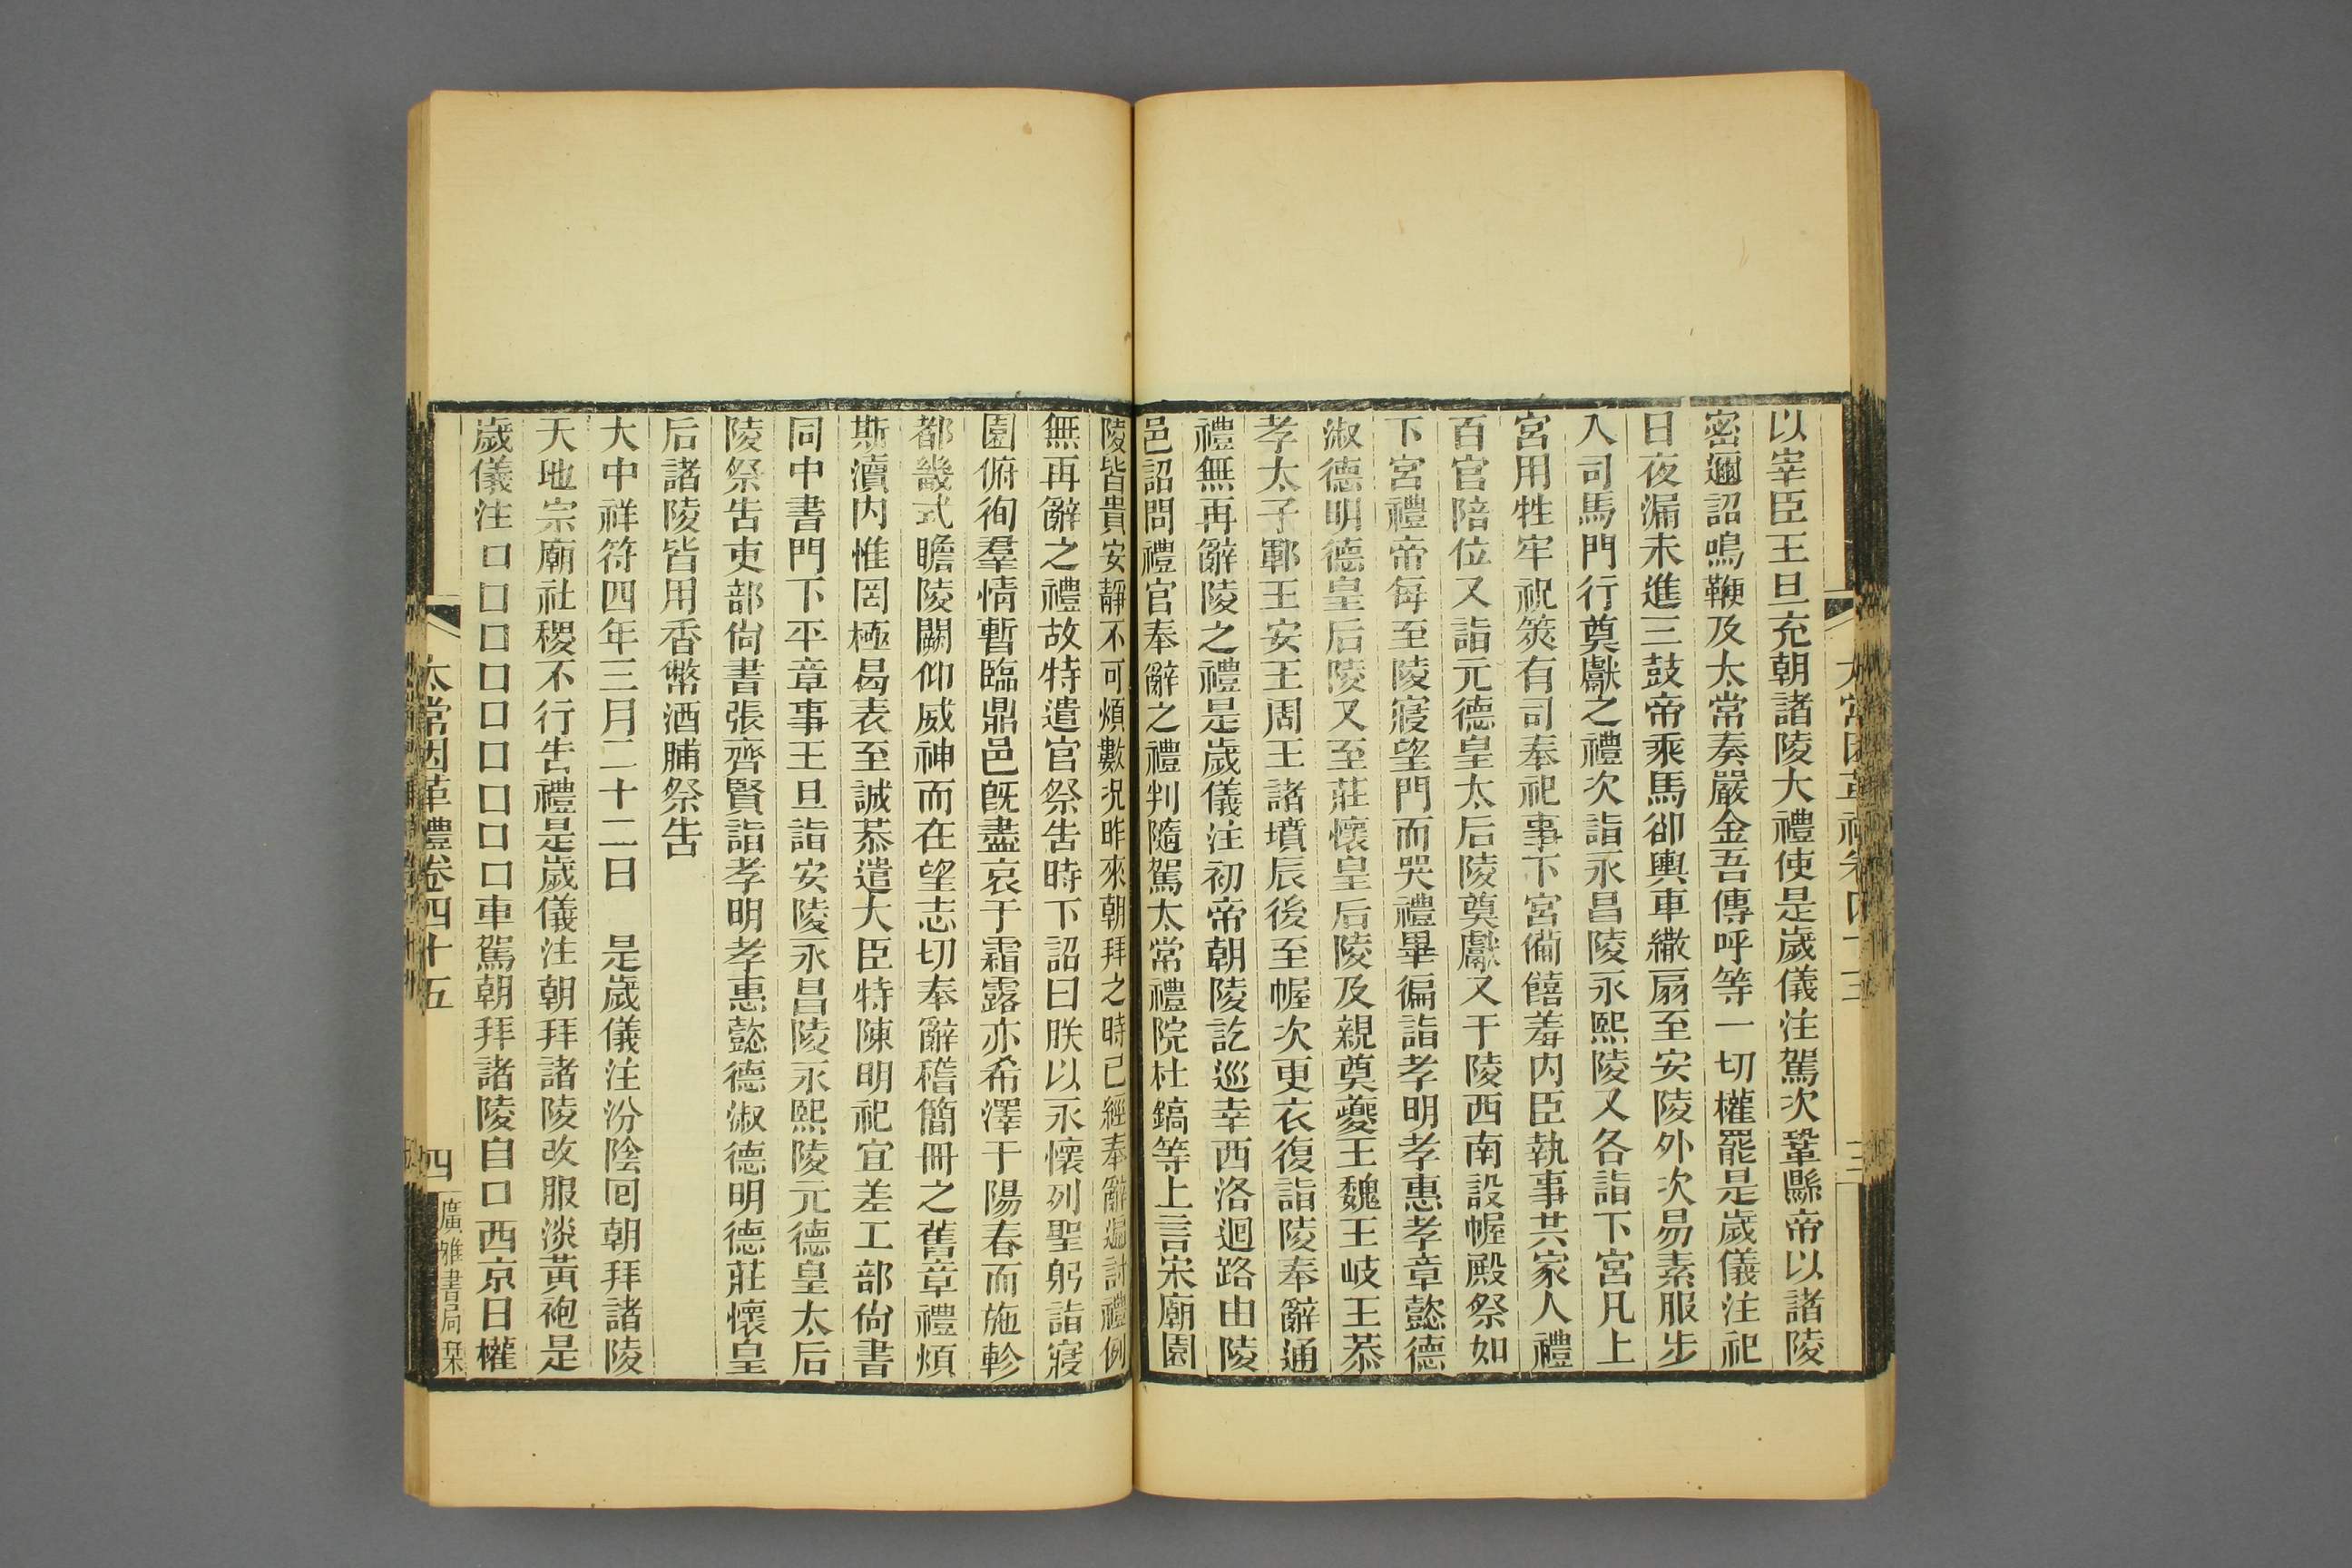 以宰臣王旦充朝諸陵大禮使是歲儀注駕次鞏縣帝以諸陵
密邇詔鳴鞭及太常奏嚴金吾傳呼等一切權罷是歲儀注祀
日夜漏未進三鼓帝乘馬卻輿車繖扇至安陵外次易素服步
入司馬門行奠獻之禮次詣永昌陵永熙陵又各詣下宮凡上
宮用牲牢祝筴有司奉祀事下宮備饎羞內臣執事共家人禮
百官陪位又詣元德皇太后陵奠獻又于陵西南設幄殿祭如
下宮禮帝每至陵寢望門而哭禮畢徧詣孝明孝惠孝章懿德
淑德明德皇后陵又至莊懷皇后陵及親奠夔王魏王岐王恭
孝太子鄆王安王周王諸墳辰後至幄次更衣復詣陵奉辭通
禮無再辭陵之禮是歲儀注初帝朝陵訖巡幸西洛迴路由陵
邑詔問禮官奉辭之禮判隨駕太常禮院杜鎬等上言宋廟園
陵皆貴安靜不可煩數況昨來朝拜之時已經奉辭遍討禮例
無再辭之禮故特遣官祭告時下詔曰朕以永懷列聖躬詣寢
園俯徇羣情暫臨鼎邑旣盡哀于霜露亦希澤于陽春而施軫
都畿式瞻陵闕仰威神而在望志切奉辭稽簡冊之舊章禮煩
斯瀆內惟罔極曷表至誠恭遣大臣特陳明祀宜差工部尙書
同中書門下平章事王旦詣安陵永昌陵永熙陵元德皇太后
陵祭告吏部尙書張齊賢詣孝明孝惠懿德淑德明德莊懷皇
后諸陵皆用香幣酒脯祭告
大中祥符四年三月二十二日　是歲儀注汾陰囘朝拜諸陵
天地宗廟社稷不行告禮是歲儀注朝拜諸陵改服淡黃袍是
歲儀注口口口口口口口口口車駕朝拜諸陵自口西京日權
太常因革禮卷四十五
四
廣雅書局栞